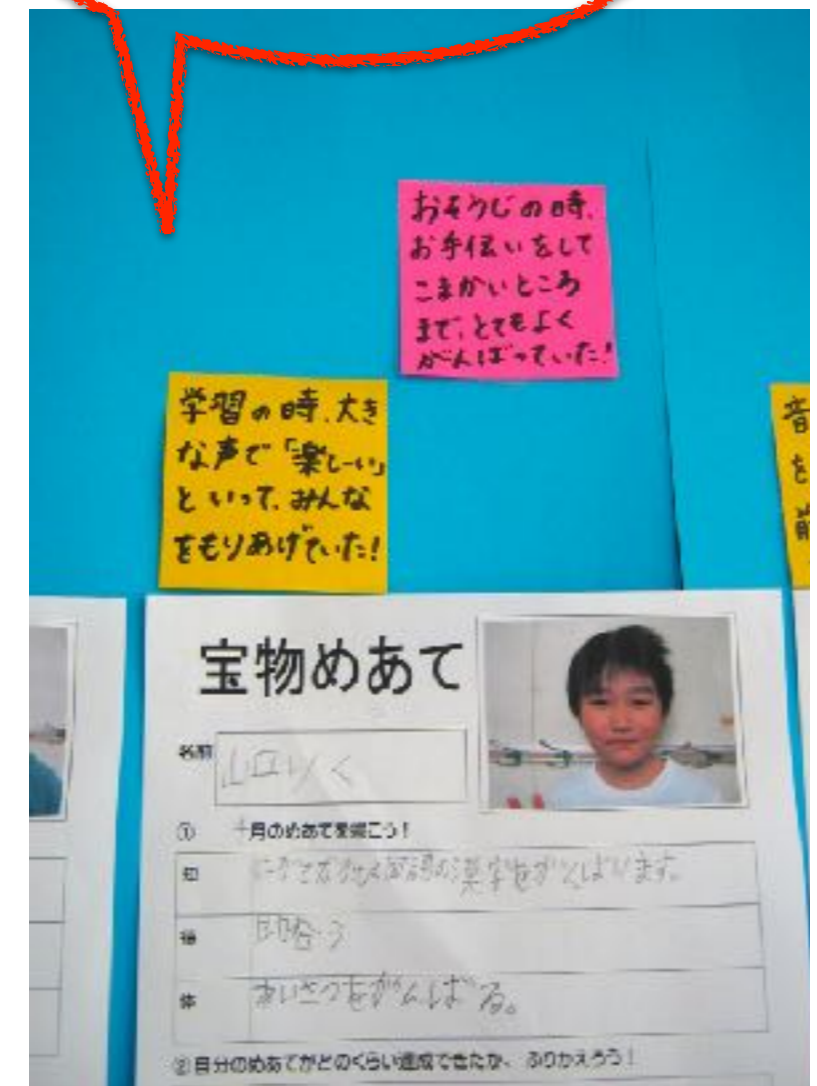 おそうじの時、
お手伝いをして
こまかいところ
まで、とてもよく
がんばっていた!
学習の時、大き
な声で「楽しーい」
といって、みんな
をもりあげていた!
音
を
前
宝物めあて
名前
① 月のめあてを書こう!
知 漢字をがんばります。
徳 助合う
体 あいさつをがんばる。
②自分のめあてがどのくらい達成できたか、ふりかえろう!